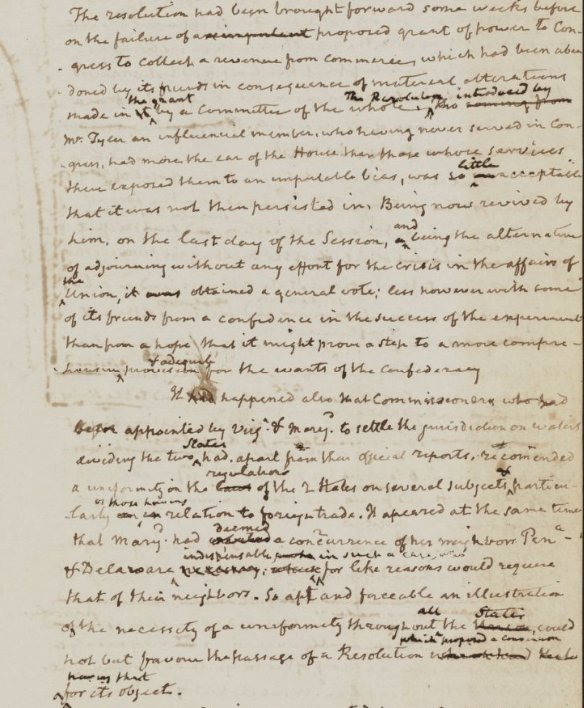 The resolution had been brought forward some weeks before
on the failure of a proposed grant of power to Con-
gress to collect a revenue from commerce, which had been aban-
doned by its friends in consequence of material alterations
the grant The Resolution introduced by
made in it by a Committee of the whole. tho coming from
Mr. Tyler an influential member, who having never served in Con-
gress, had more the ear of the House than those whose services
little
there exposed them to an imputable bias, was so acceptable
that it was not then persisted in. Being now revived by
and
him, on the last day of the Session, being the alternative
of adjourning without any effort for the crisis in the affairs of
the
Union, it was obtained a general vote; less however with some
of its friends from a confidence in the success of the experiment
than from a hope, that it might prove a step to a more compre-
& adequate
hensive provision for the wants of the confederacy
It had happened also that Commissioners who had
been appointed by Virga. & Maryd. to settle the jurisdiction on waters
States
dividing the two had, apart from their official reports, recommended
regulations &
a uniformity in the laws of the 2 States on several subjects particu-
or those having
larly on in relation to foreign trade. It apeared at the same time
deemed
that Maryd. had a concurrence of her neighbors Pena-
indispensable in such a case, who
& Delaware necessary; which for like reasons would require
that of their neighbors. So apt and forceable an illustration
all States
of the necessity of a uniformity throughout the could
which proposed a convention
not but favour the passage of a Resolution which had
having that
for its object.